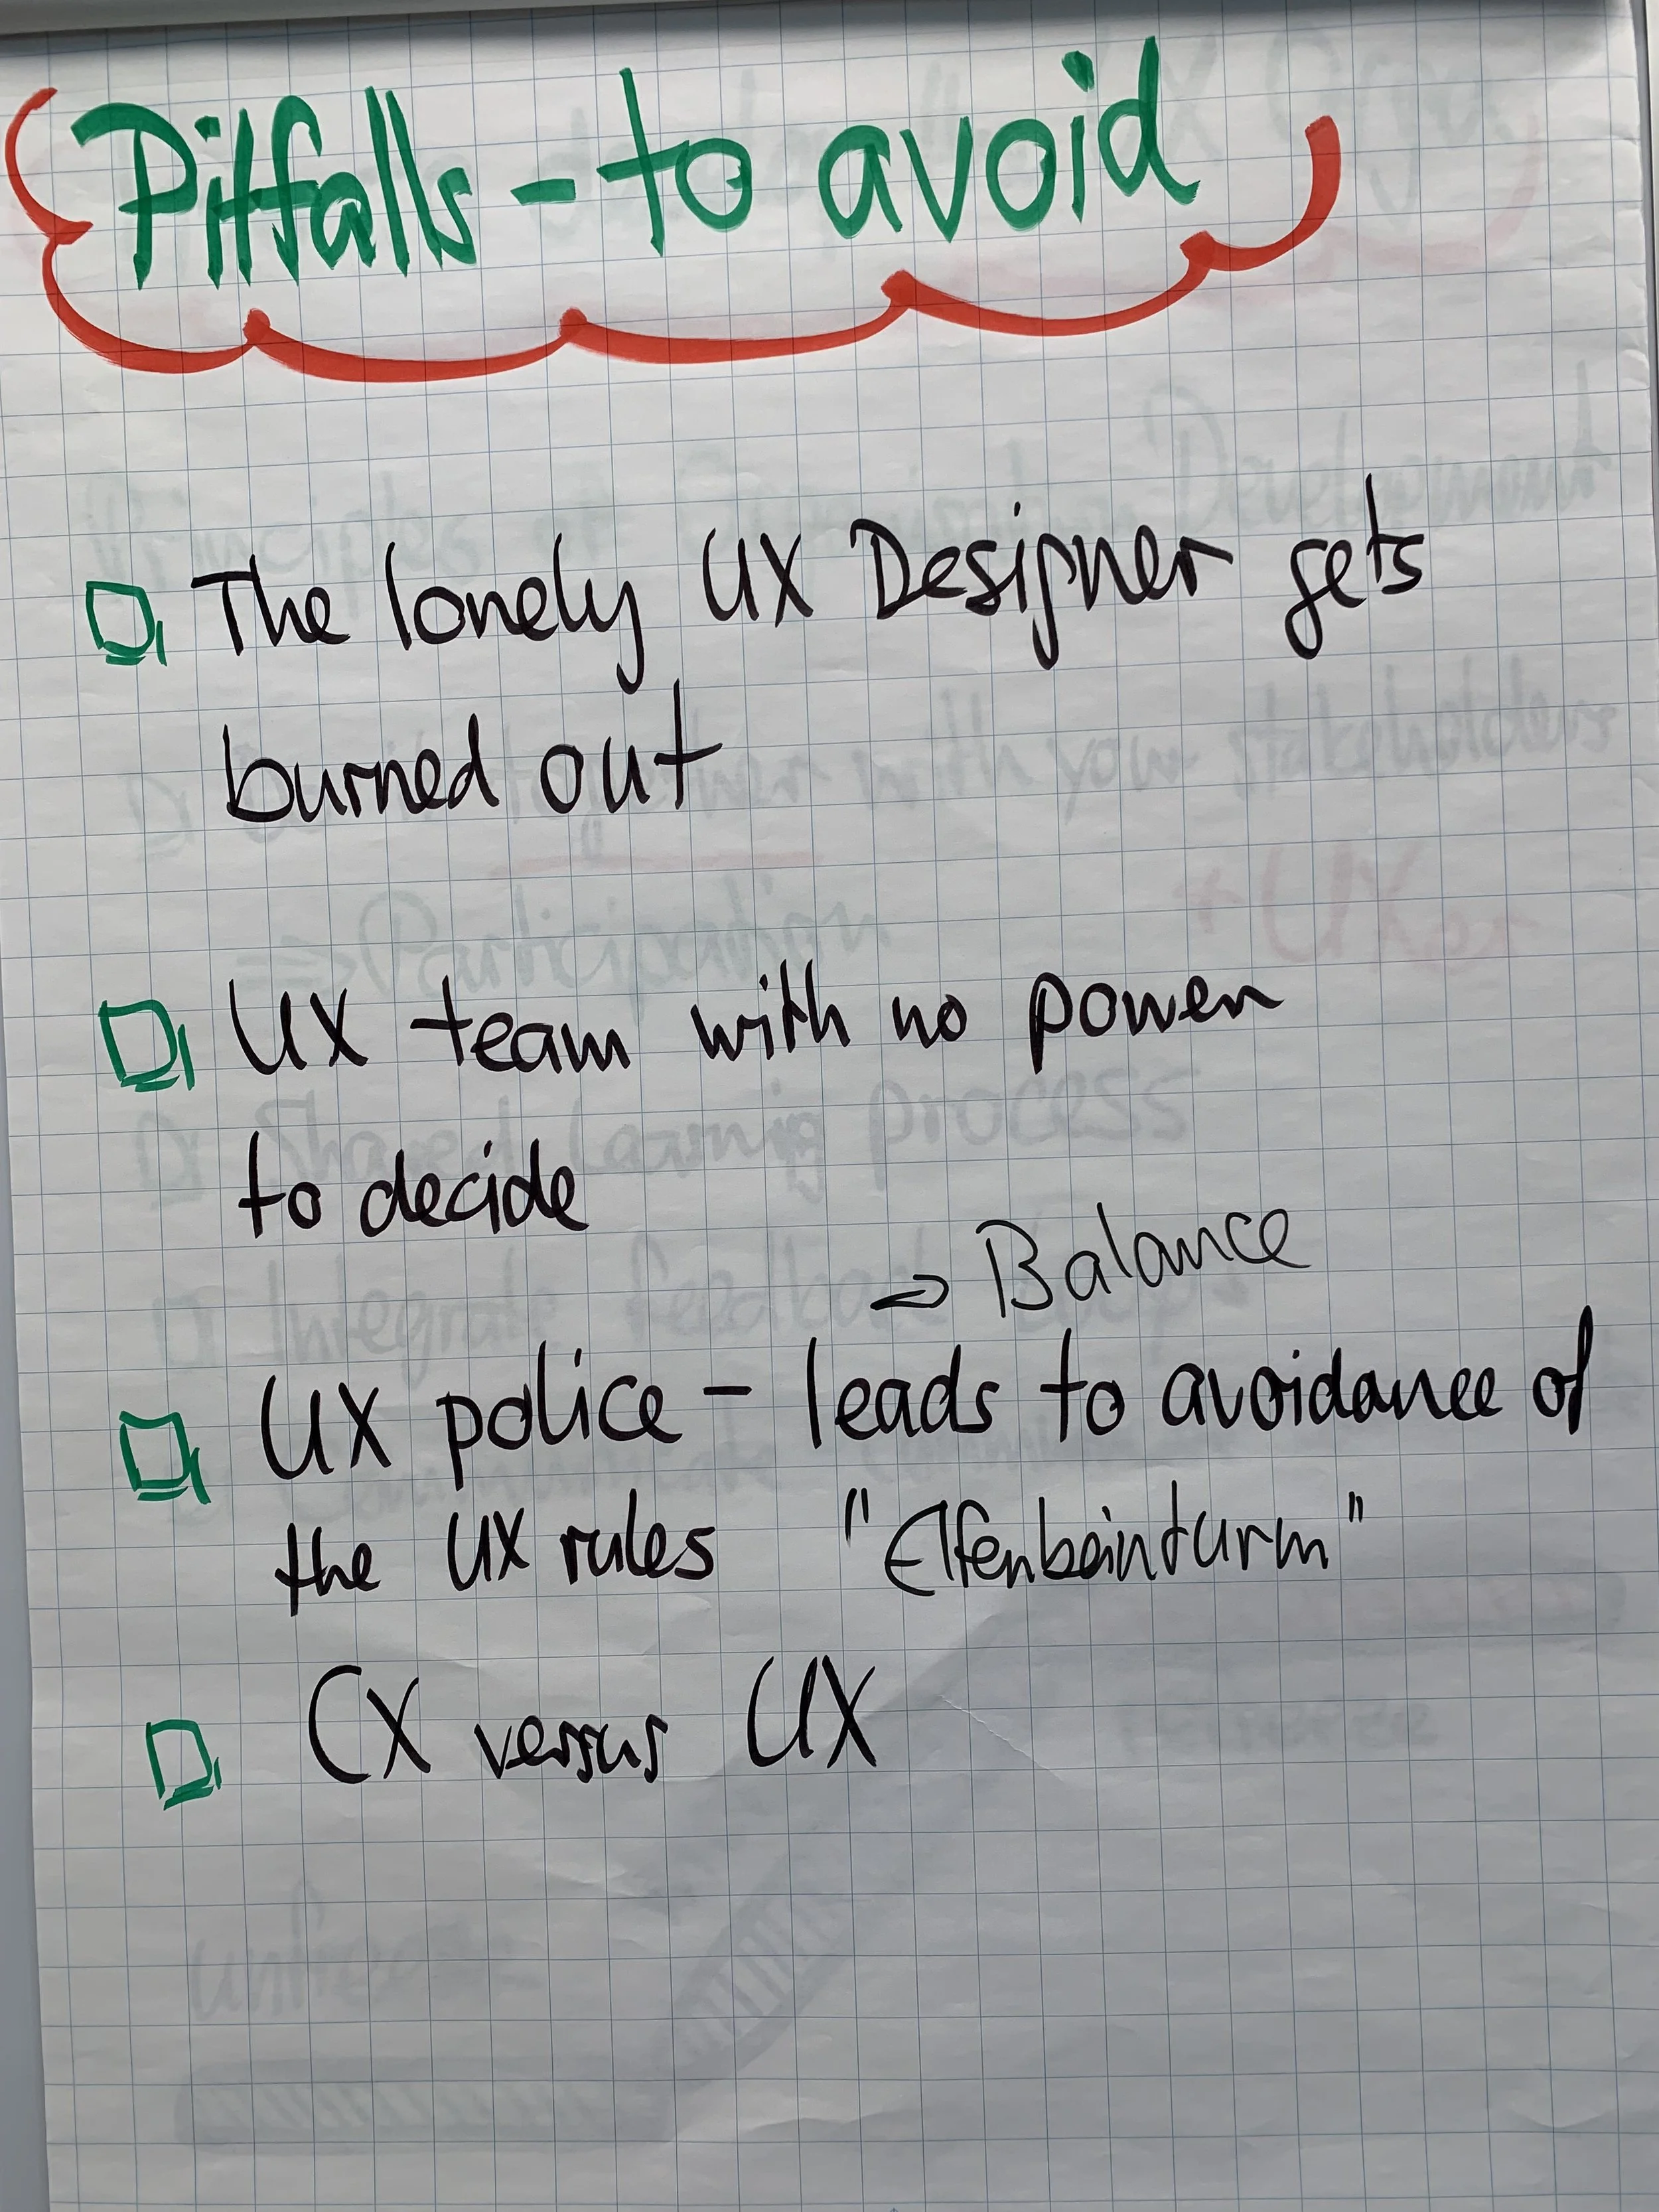 Pitfalls - to avoid
The lonely UX Designer gets
burned out
UX team with no power
to decide
⇒ Balance
UX police - leads to avoidance of
the UX rules "Elfenbeinturm"
CX versus UX
Participation
+ UXer
Shared Learning process